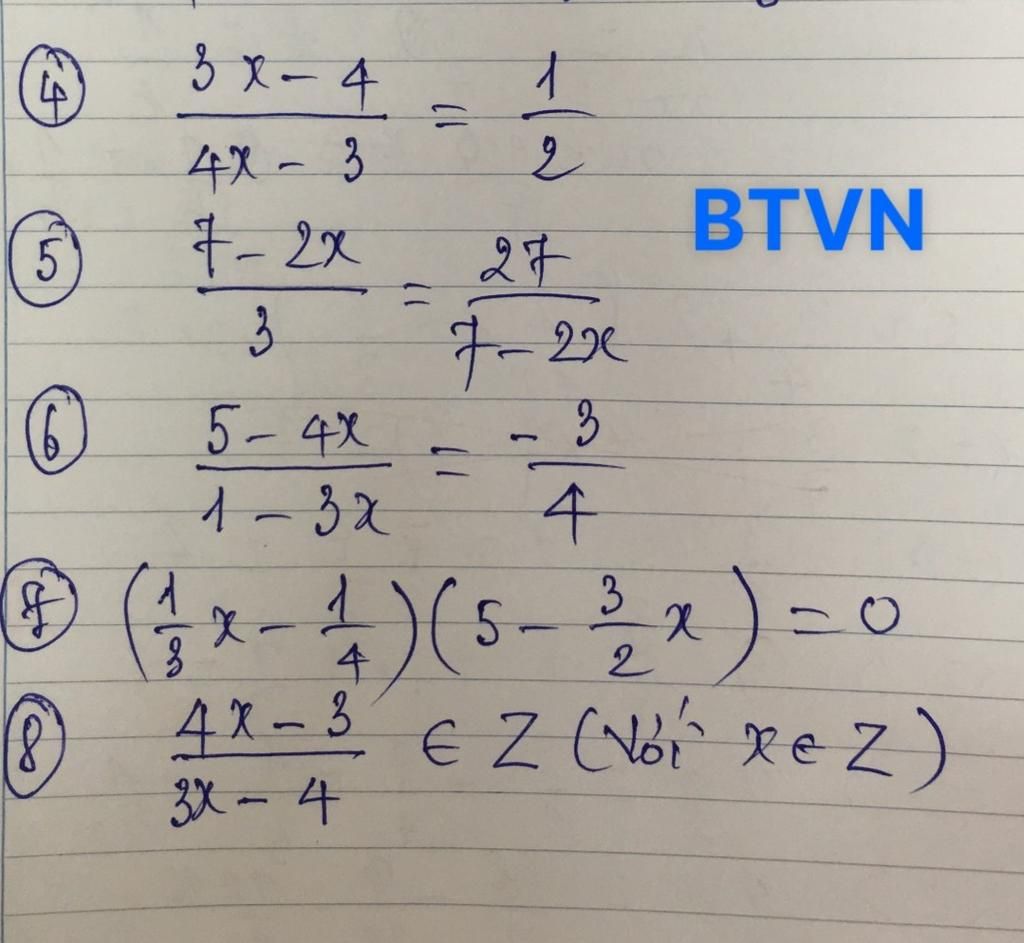 ④ (3x - 4)/(4x - 3) = 1/2
BTVN
⑤ (7 - 2x)/3 = 27/(7 - 2x)
⑥ (5 - 4x)/(1 - 3x) = -3/4
⑦ (1/3 x - 1/4)(5 - 3/2 x) = 0
⑧ (4x - 3)/(3x - 4) ∈ Z (Với x ∈ Z)